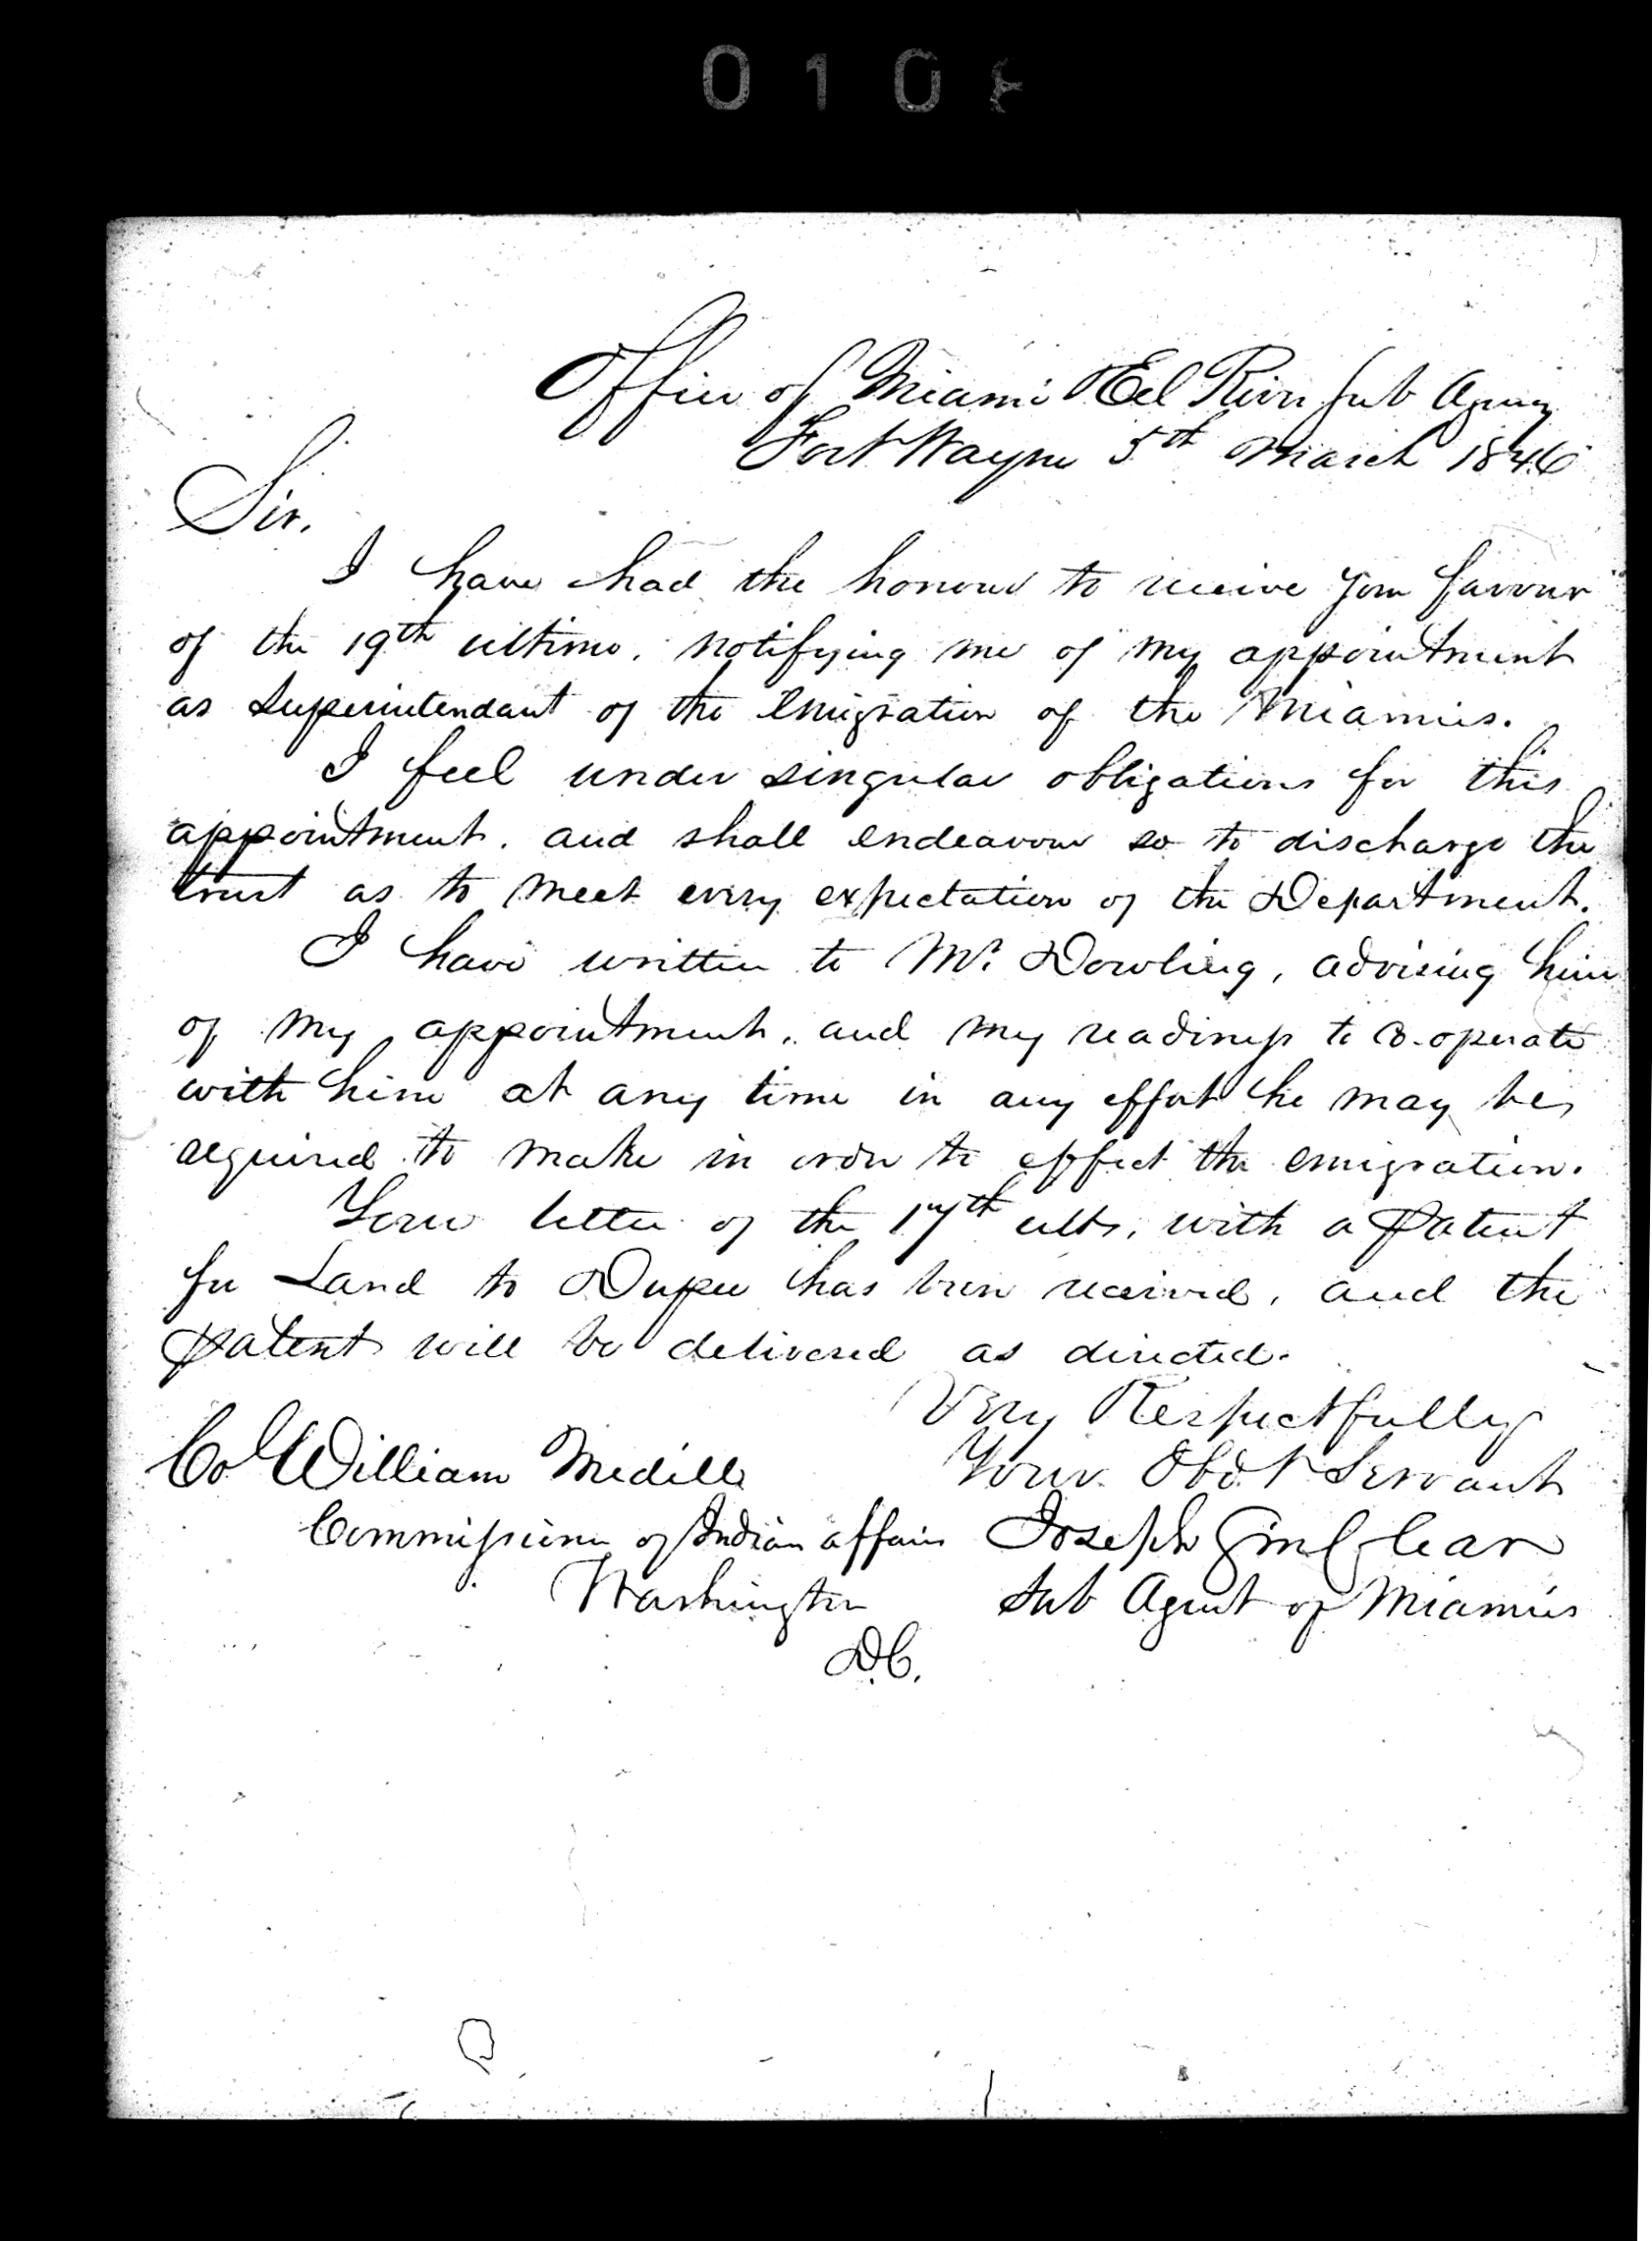 0108
Office of Miami & Eel River Sub Agency
Fort Wayne 5th March 1846
Sir.
I have had the honour to receive your favour
of the 19th ultimo. notifying me of my appointment
as Superintendant of the Emigration of the Miamies.
I feel under singular obligations for this
appointment. and shall endeavour so to discharge the
trust as to meet every expectation of the Department.
I have written to Mr. Dowling, advising him
of my appointment, and my readiness to co-operate
with him at any time in any effort he may be
required to make in order to effect the emigration.
Your letter of the 17th ulto, with a Patent
for Land to Dupee has been received, and the
Patent will be delivered as directed.
Very Respectfully
Your Obdt Servant
Co William Medill
Commissioner of Indian affairs
Washington
D.C.
Joseph Sinclear
Sub Agent of Miamies